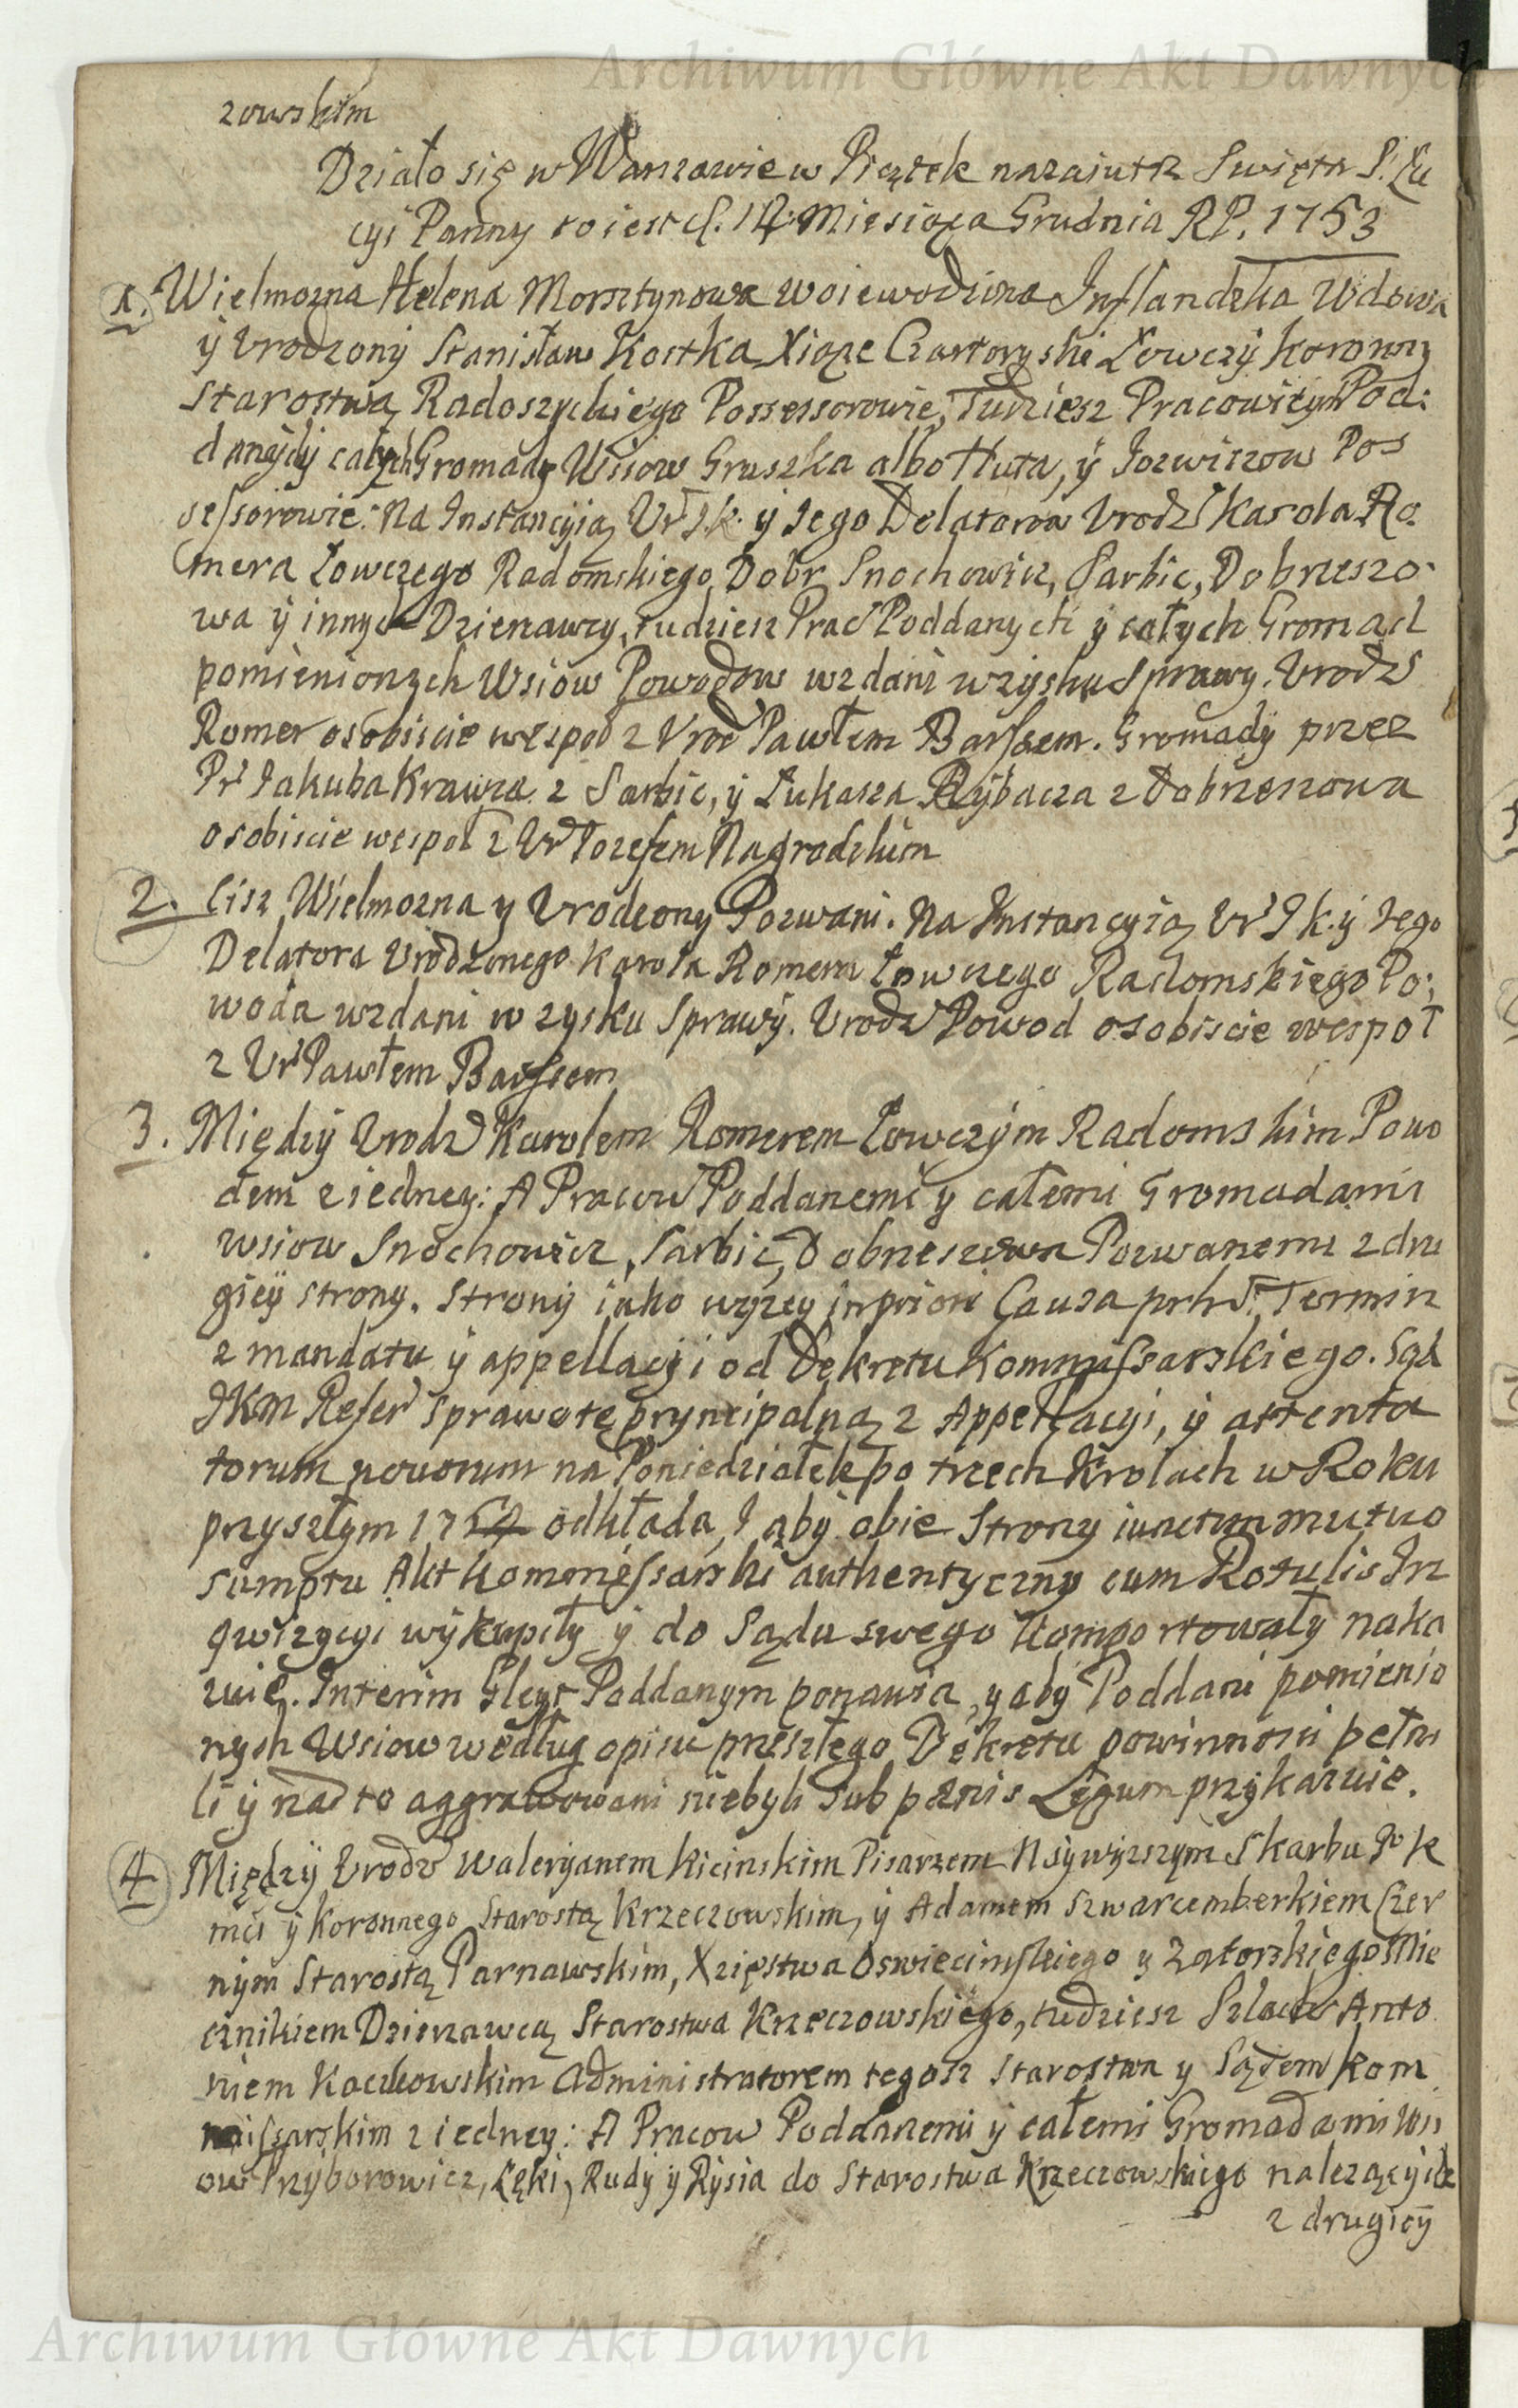 Archiwum Główne Akt Dawnych
zowskim
Działo się w Warszawie w Piątek nazaiutrz Swięta S. Łu
cyi Panny to iest d. 14. Miesiąca Grudnia RP. 1753
1. Wielmozna Helena Morsztynowa woiewodzina Inflandzka Wdowa
ÿ Vrodzonÿ Stanisław Kostka Xiąze Czartoryski Łowczÿ koronny
Starostwa Radoszyckiego Possessorowie, Tudziesz Pracowici Pod:
dani całych Gromady Wsiow Gruszka albo Huta, ÿ Jozwizow Pos
sessorowie: Na Instancyią Vr I.K. ÿ Iego Delatora Vrodz Karola Ro
mera Łowczego Radomskiego Dobr Snochowicz, Sarbic, Dobrzeszo
wa ÿ innych Dzierzawcy, tudziesz Prac Poddanych ÿ całych Gromad
pomienionych Wsiow Powodow wzdani w zysku Sprawy. Vrodz
Romer osobiscie wespoł z Vrod Pawłem Barssem. Gromadÿ przez
Pr Jakuba Krawca z Sarbic, ÿ Łukasza Rÿbacza z Dobrzeszowa
osobiscie wespoł z Vr Iozefem Nagrodzkim
2. Cisz Wielmozna y Vrodzony Pozwani. Na Instancyią Vr I K. ÿ Iego
Delatora Vrodzonego Karola Romera Łowczego Radomskiego Po:
woda wzdani w zysku Sprawÿ. Vrodz Powod osobiscie wespoł
z Vr Pawłem Barssem
3. Międzÿ Vrodz Karolem Romerem Łowczÿm Radomskim Powo
dem z iedney: A Pracow Poddanemi y całemi Gromadami
wsiow Snochowicz, Sarbic, Dobrzeszowa Pozwanemi z dru
gieÿ strony. Stronÿ iako wÿzey in priori Causa Termin
z mandatu ÿ appellacÿi od Dekretu Kommissarskiego. Sąd
IKM Refer sprawę tę pryncipalną z Appellacyi, ÿ attenta
torum novorum na Poniedziałek po trzech Krolach w Roku
przyszłym 1754 odkłada, I abÿ obie Strony iunctim mutuo
sumptu Akt Kommissarski authentyczny cum Rotulis In
qwizycyi wÿkupiły ÿ do Sądu swego komportowały naka
zuię. Interim Gleyt Poddanym ponawia, y abÿ Poddani pomienio
nych Wsiow według opisu przeszłego Dekretu powinnosci pełni
li ÿ nad to aggrawowani niebyli sub pænis Legum przÿkazuie.
4 Międzÿ Vrodz Waleryanem Kicinskim Pisarzem Naÿwyzszÿm Skarbu IK
mci ÿ Koronnego Starostą Krzeczowskim, ÿ Adamem Szwarcemberkiem Czer
nÿm Starostą Parnawskim, Xzięstwa Oswiecimskiego y Zatorskiego Mie
cznikiem Dzierzawcą Starostwa Krzeczowskiego, tudziesz Szlach Anto
niem Kaczkowskim Administratorem tegosz Starostwa y Sądem Kom
missarskim z iedney: A Pracow Poddanemi ÿ całemi Gromadami Wsi
ow Przyborowicz, Łęki, Rudÿ ÿ Rÿsia do Starostwa Krzeczowskiego nalezącÿch
z drugieÿ
Archiwum Główne Akt Dawnych